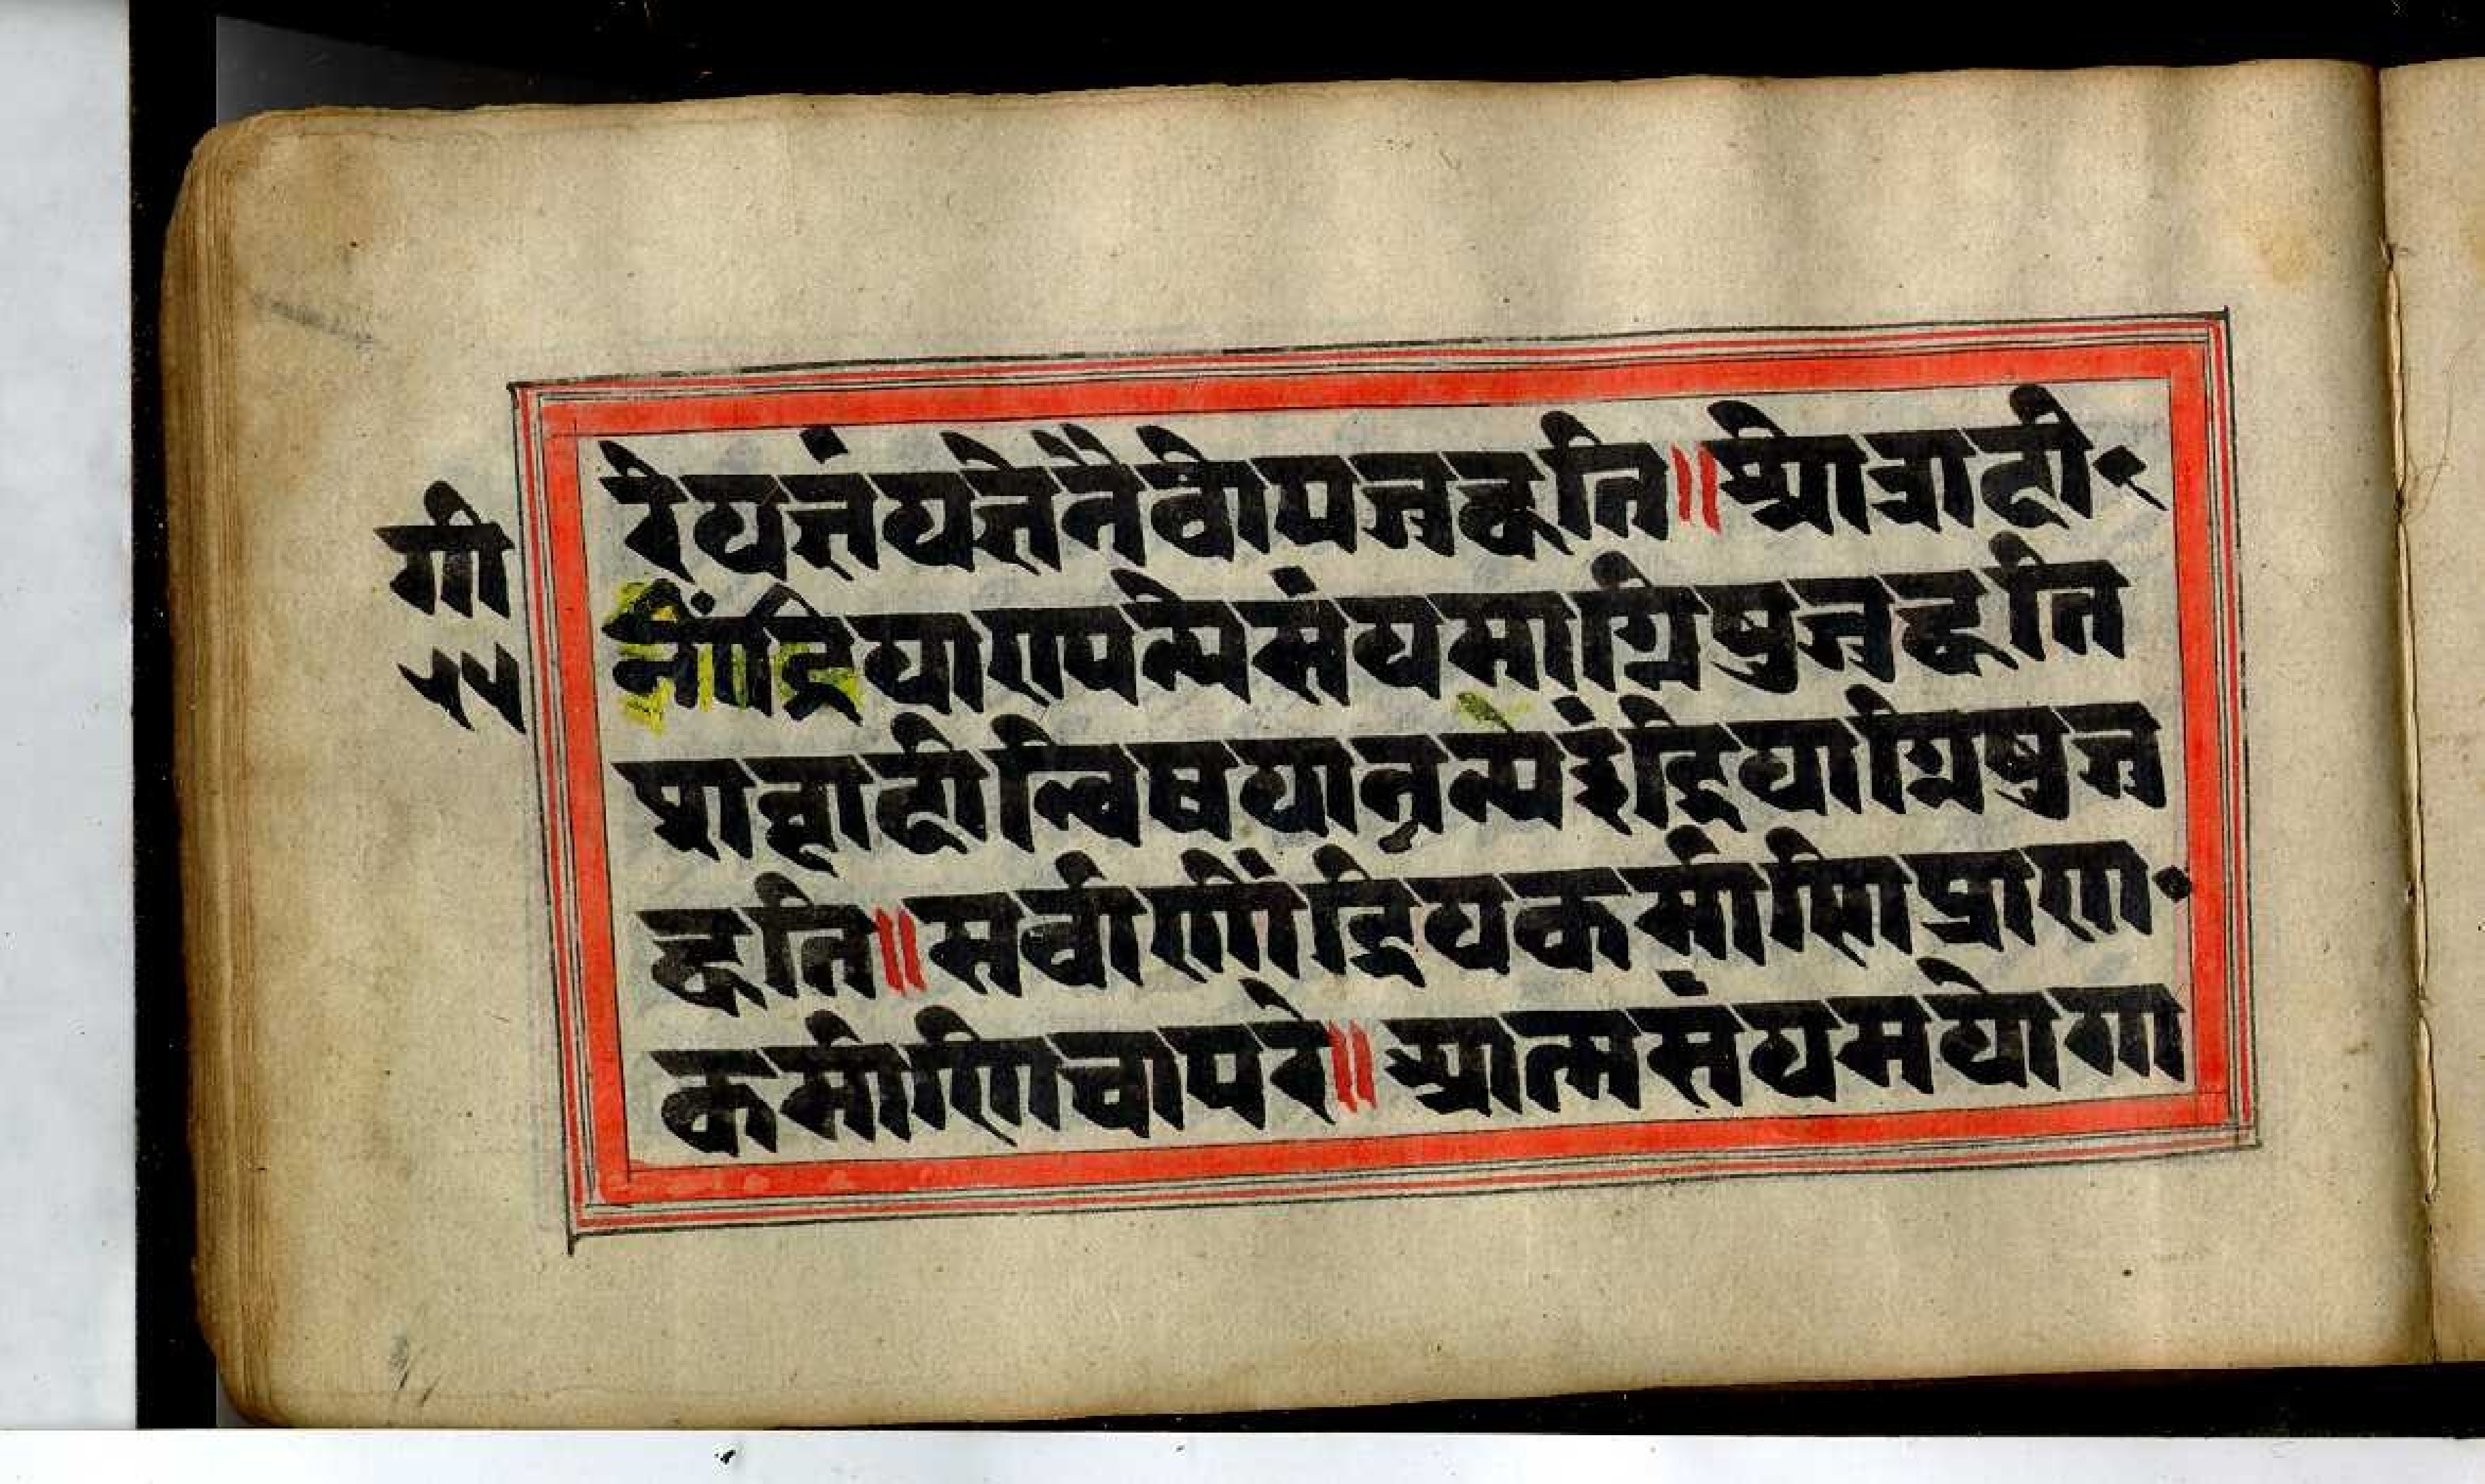 रेयज्ञंयज्ञेनैवोपजुह्वति॥श्रोत्रादी
गी
नींद्रियाण्यन्येसंयमाग्निषुजुह्वति
५५
शब्दादीन्विषयानन्यइंद्रियाग्निषुजु
ह्वति॥सर्वाणींद्रियकर्माणिप्राण
कर्माणिचापरे॥आत्मसंयमयोगा